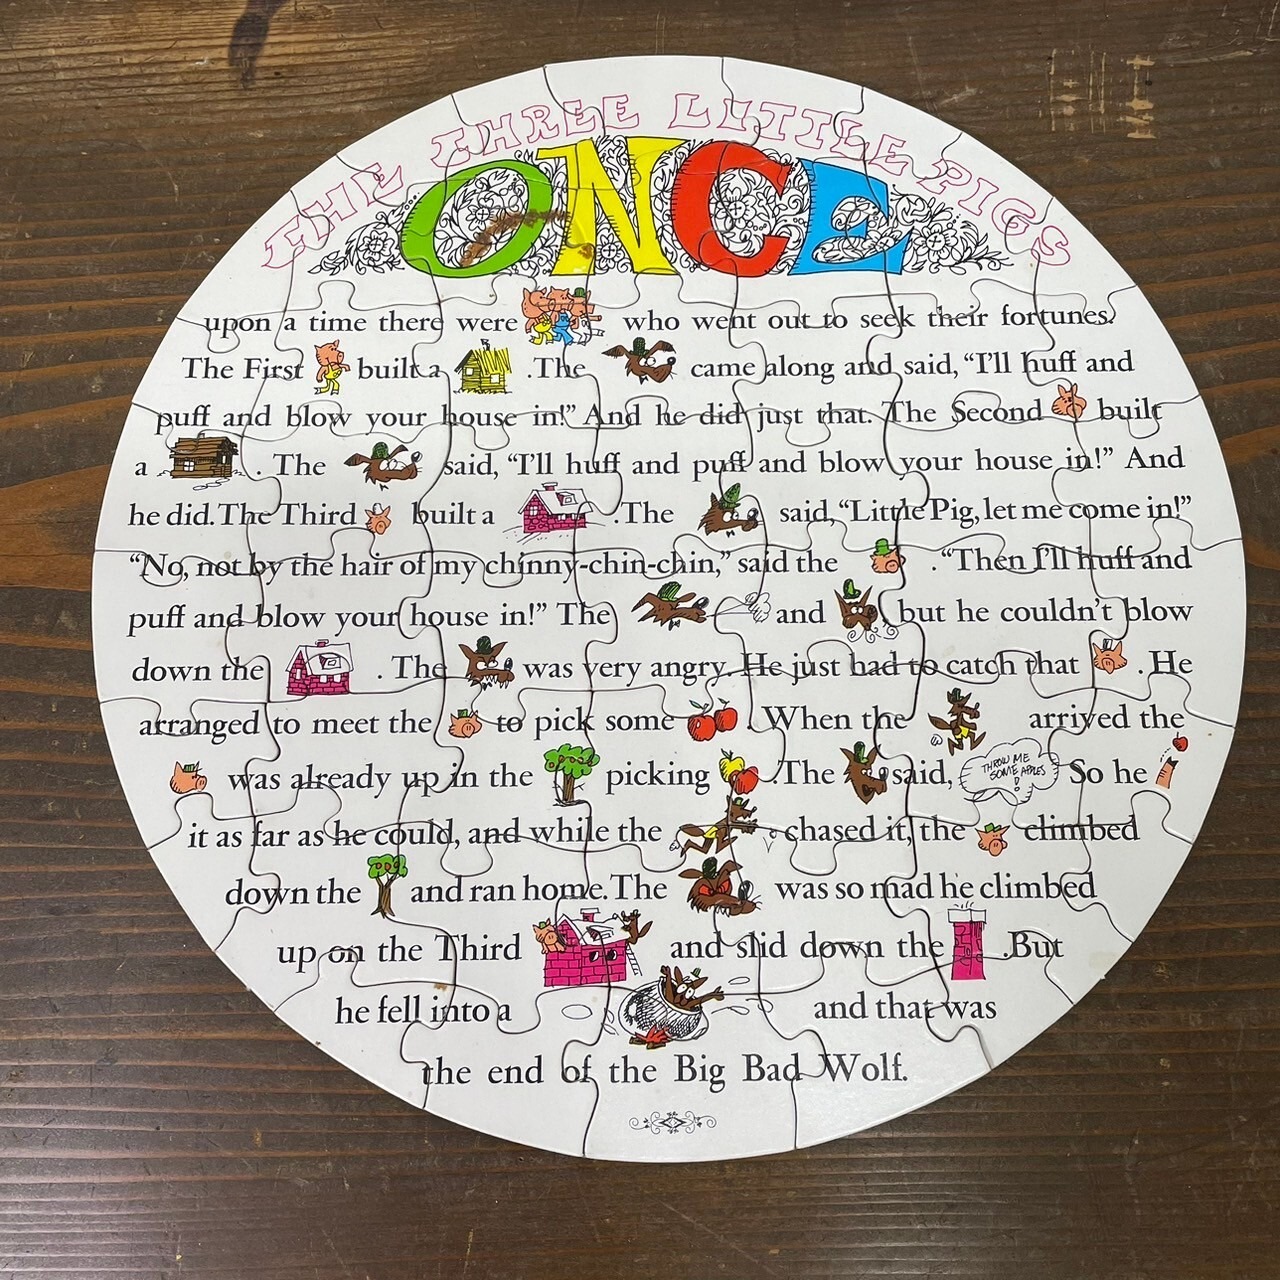 THE THREE LITTLE PIGS
ONCE
upon a time there were who went out to seek their fortunes.
The First built a . The came along and said, “I’ll huff and
puff and blow your house in!” And he did just that. The Second built
a . The said, “I’ll huff and puff and blow your house in!” And
he did. The Third built a . The said, “Little Pig, let me come in!”
“No, not by the hair of my chinny-chin-chin,” said the . “Then I’ll huff and
puff and blow your house in!” The and , but he couldn’t blow
down the . The was very angry. He just had to catch that . He
arranged to meet the to pick some . When the arrived the
was already up in the picking . The said, THROW ME SOME APPLES! So he
it as far as he could, and while the chased it, the climbed
down the and ran home. The was so mad he climbed
up on the Third and slid down the . But
he fell into a and that was
the end of the Big Bad Wolf.